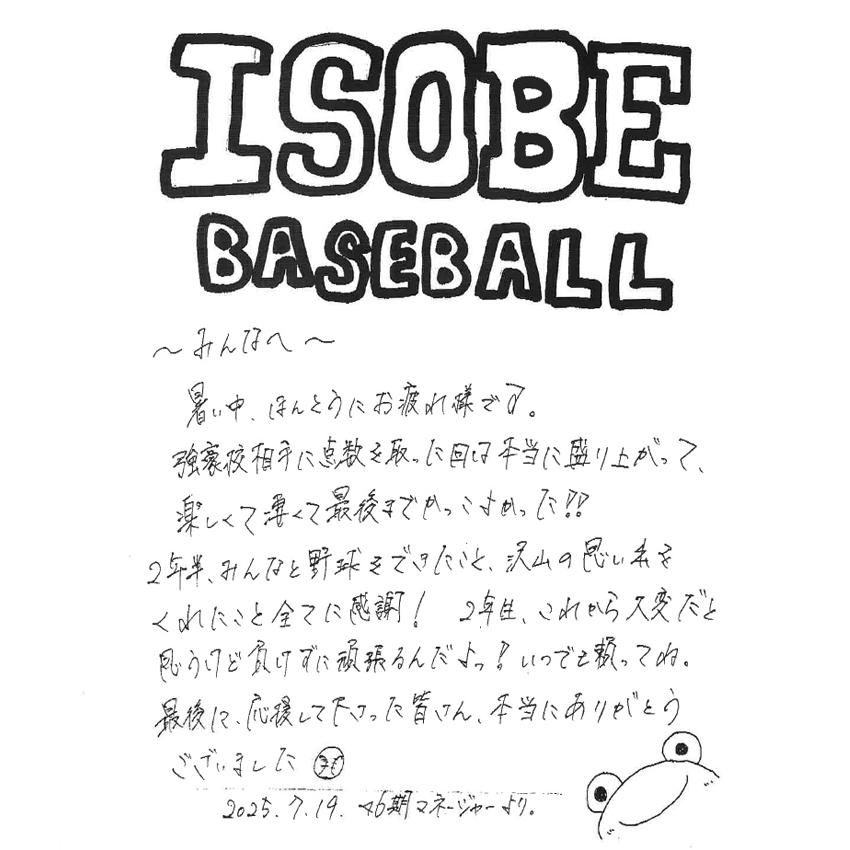 ISOBE
BASEBALL
～みんなへ～
暑い中、ほんとうにお疲れ様です。
強豪校相手に点数を取った回は本当に盛り上がって、
楽しくて凄くて最後までかっこよかった!!
2年半、みんなと野球をできたこと、沢山の思い出を
くれたこと全てに感謝! 2年生、これから大変だと
思うけど負けずに頑張るんだよっ!いつでも頼ってね。
最後に、応援して下さった皆さん、本当にありがとう
ございました
2025.7.19. 46期マネージャーより。